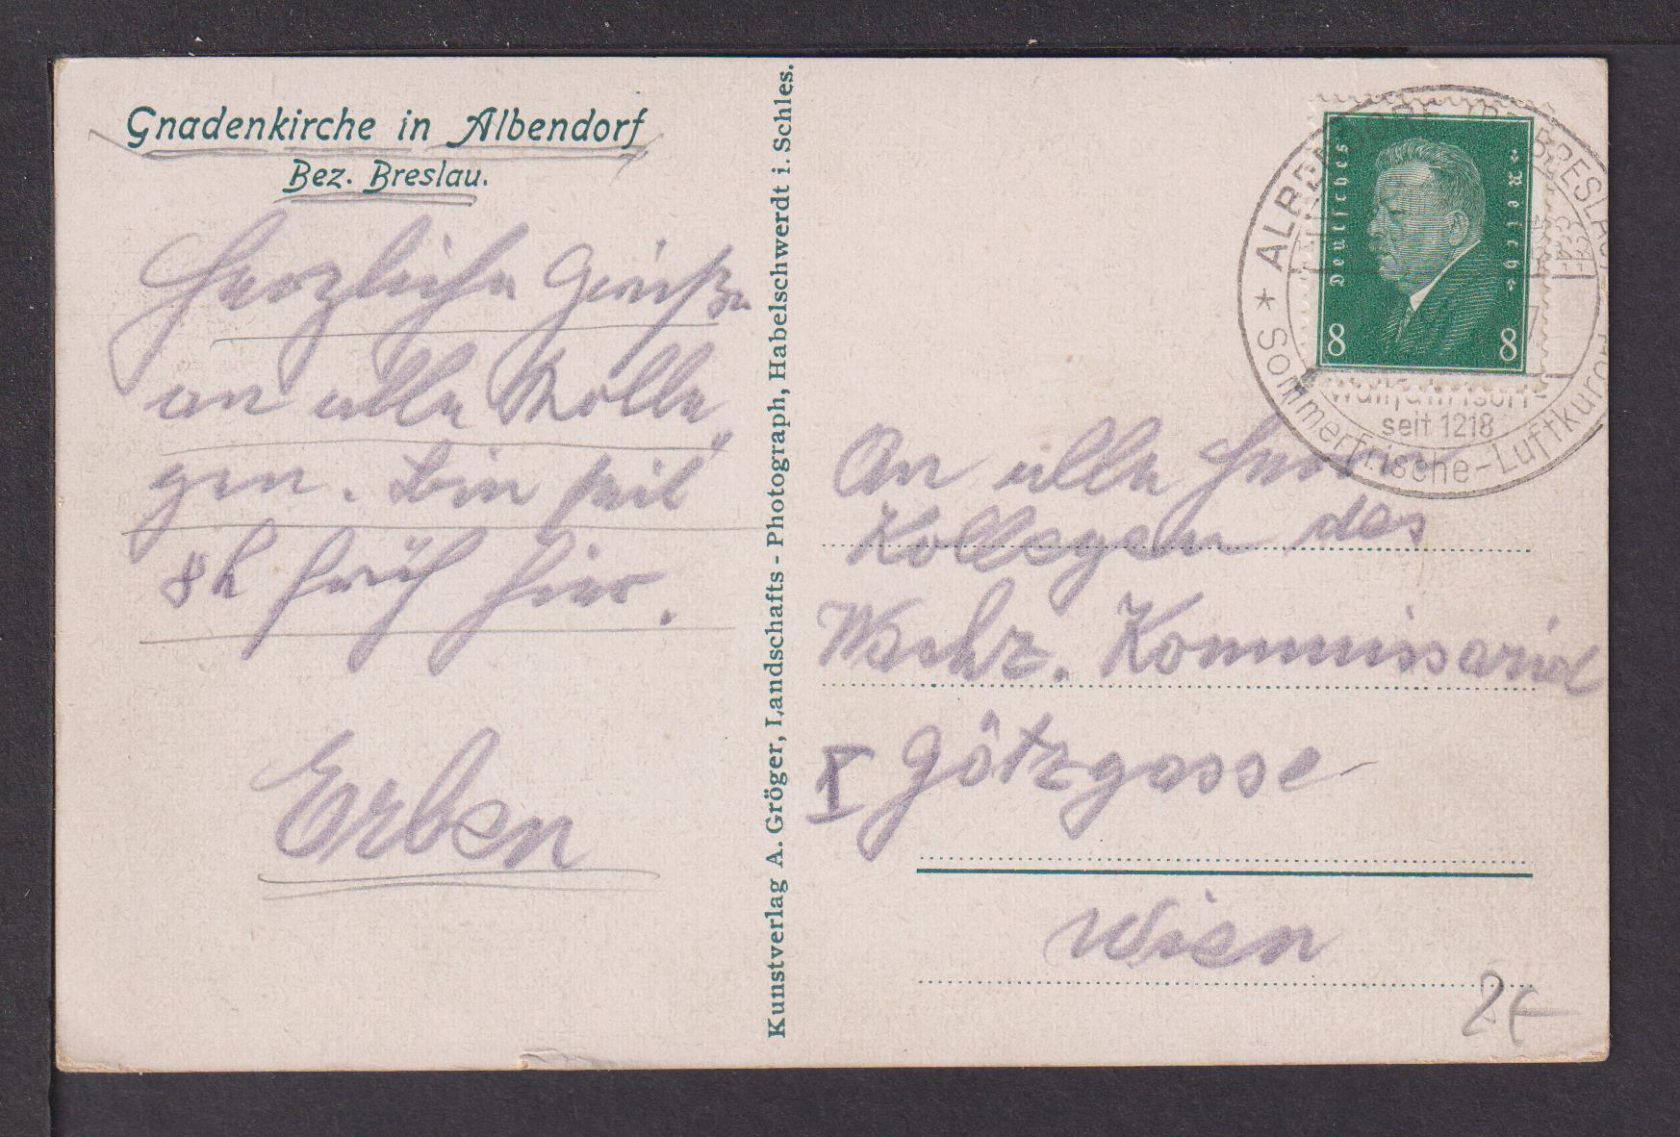 Gnadenkirche in Albendorf
Bez. Breslau.
Herzliche Grüße
an alle Kolle,
gen. Bin seit
8h früh hier.
Erben
Kunstverlag A. Gröger, Landschafts - Photograph, Habelschwerdt i. Schles.
Deutsches Reich
8 8
ALBENDORF (BZ. BRESLAU)
Wallfahrtsort
seit 1218
Sommerfrische - Luftkurort
An alle Herren
Kollegen des
Kommissariat
I Götzgasse
Wien